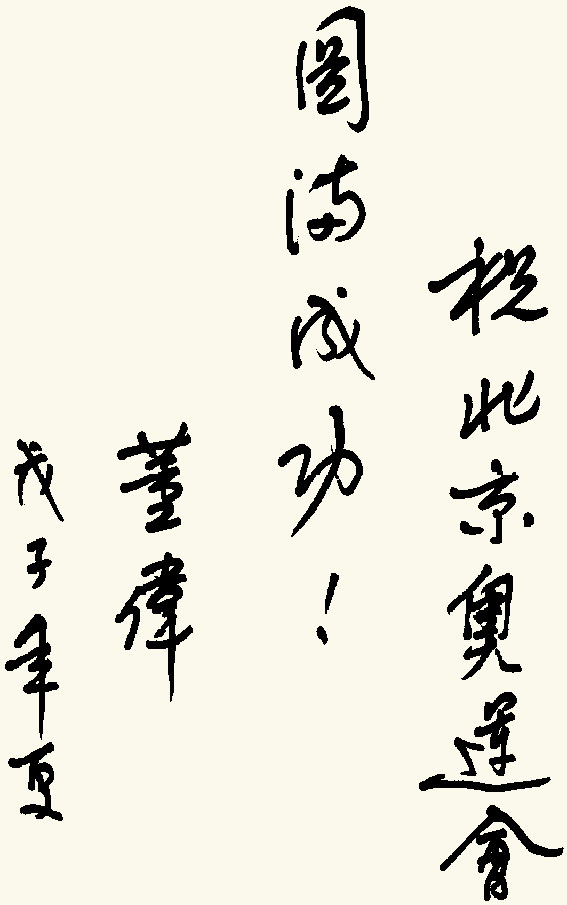 祝北京奧運會
圓滿成功！
董偉
戊子年夏